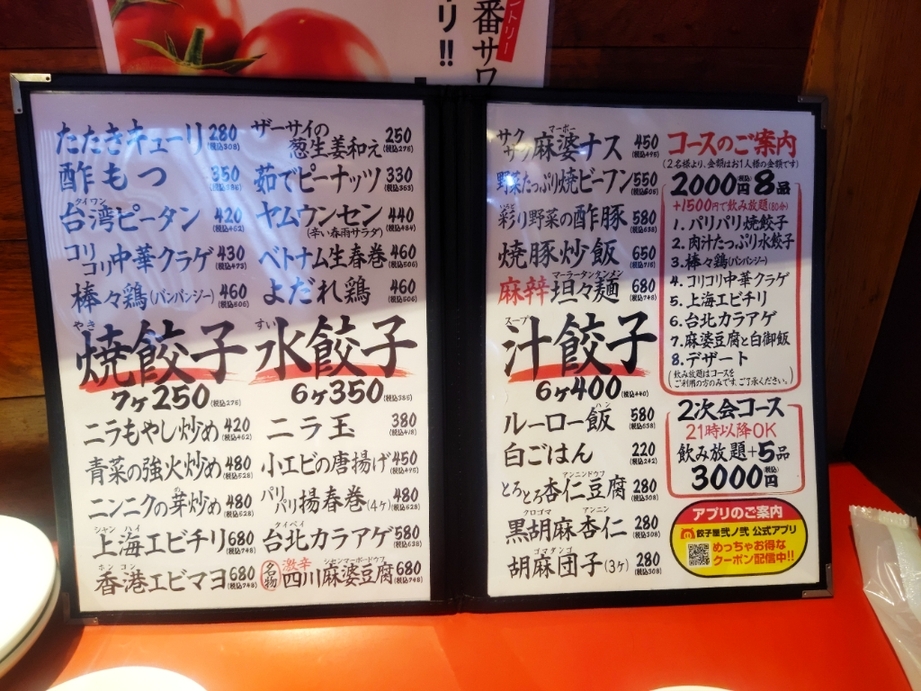 リ!!
番サワ
たたきキューリ 280 (税込308)
酢もつ 350
台湾ピータン 420 (税込462)
タイワン
コリコリ中華クラゲ 430 (税込473)
棒々鶏(バンバンジー) 460 (税込506)
ザーサイの
葱生姜和え 250 (税込275)
茹でピーナッツ 330 (税込363)
ヤムウンセン 440 (税込484)
(辛い春雨サラダ)
ベトナム生春巻 460 (税込506)
よだれ鶏 460 (税込506)
やき
焼餃子
7ヶ250 (税込275)
すい
水餃子
6ヶ350 (税込385)
ニラもやし炒め 420 (税込462)
青菜の強火炒め 480 (税込528)
ニンニクの芽炒め 480 (税込528)
シャンハイ
上海エビチリ 680 (税込748)
ホンコン
香港エビマヨ 680 (税込748)
ニラ玉 380 (税込418)
小エビの唐揚げ 450 (税込495)
パリパリ揚春巻(4ヶ) 480 (税込528)
タイペイ
台北カラアゲ 580 (税込638)
名物 激辛 四川麻婆豆腐 680 (税込748)
マーボー
サクサク麻婆ナス 450 (税込495)
野菜たっぷり焼ビーフン 550
彩り野菜の酢豚 580 (税込638)
焼豚炒飯 650 (税込715)
マーラータンタンメン
麻辣坦々麺 680 (税込748)
スープ
汁餃子
6ヶ400 (税込440)
ハン
ルーロー飯 580 (税込638)
白ごはん 220 (税込242)
アンニンドウフ
とろとろ杏仁豆腐 280 (税込308)
クロゴマ アンニン
黒胡麻杏仁 280 (税込308)
ゴマダンゴ
胡麻団子(3ヶ) 280 (税込308)
コースのご案内
(2名様より、金額はお1人様の金額です)
2000円(税込)8品
+1500円で飲み放題(80分)
1. パリパリ焼餃子
2. 肉汁たっぷり水餃子
3. 棒々鶏(バンバンジー)
4. コリコリ中華クラゲ
5. 上海エビチリ
6. 台北カラアゲ
7. 麻婆豆腐と白御飯
8. デザート
(飲み放題はコースを
ご利用の方のみです。ご了承ください。)
2次会コース
21時以降OK
飲み放題+5品
3000円(税込)
アプリのご案内
餃子屋弐ノ弐 公式アプリ
めっちゃお得な
クーポン配信中!!